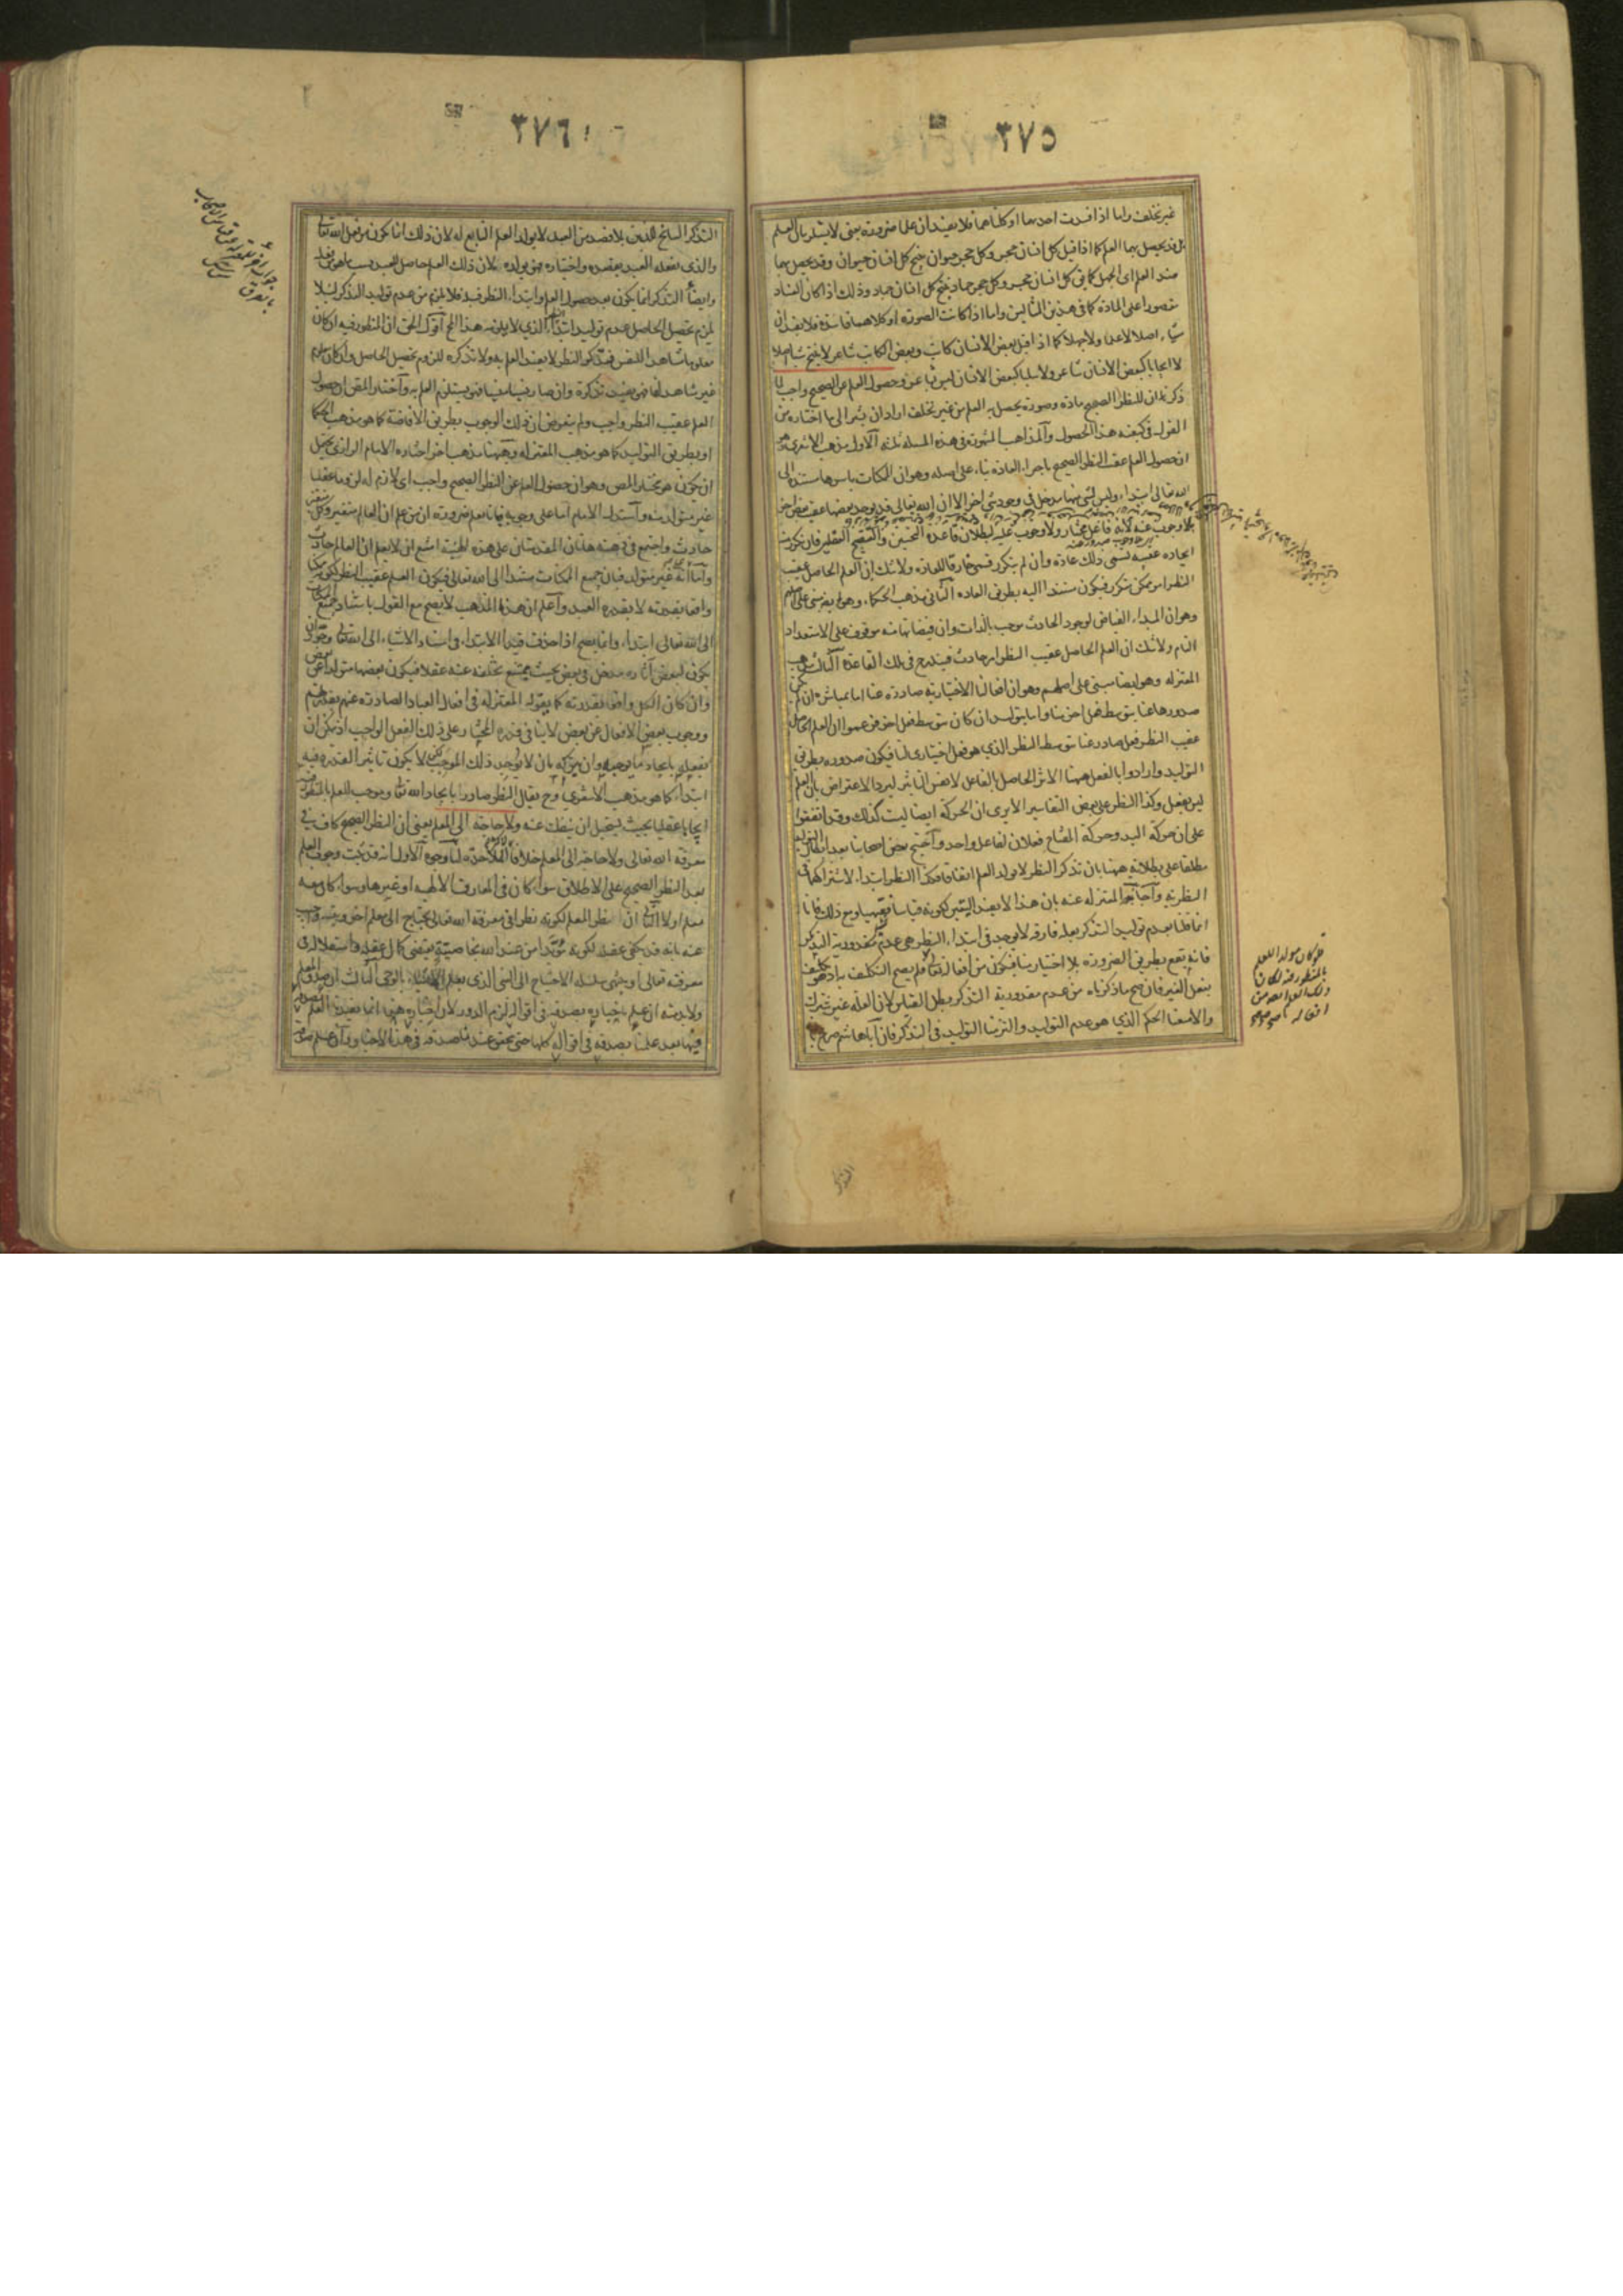 ٣٧٥
غير تخلف واما اذا فسدت احديهما او كلتاهما فلا يفيد ان علما ضرورة يعنى لا يستلزمان العلم
بل قد يحصل بهما العلم كما اذا قيل كل انسان حجر وكل حجر حيوان ينتج كل انسان حيوان وقد يحصل بهما
ضد العلم اى الجهل كما فى كل انسان حجر وكل حجر جماد ينتج كل انسان جماد وذلك اذا كان الفساد
مقصورا على المادة كما فى هذين المثالين واما اذا كانت الصورة او كلاهما فاسدة فلا يفيد ان
شيئا اصلا لا علما ولا جهلا كما اذا قيل بعض الانسان كاتب وبعض الكاتب شاعر لا ينتج شيئا اصلا
لا ايجابا كبعض الانسان شاعر ولا سلبا كبعض الانسان ليس شاعر وحصول العلم عن الصحيح واجب لما
ذكر ان للنظر الصحيح مادة وصورة يحصل به العلم من غير تخلف اراد ان يشير الى ما اختاره من
القول فى كيفية هذا الحصول والمذاهب المشهورة فى هذه المسئلة ثلثة الاول مذهب الاشعرى وهو
ان حصول العلم عقيب النظر الصحيح باجراء العادة بناء على اصله وهو ان الممكنات باسرها مستندة الى
الله تعالى ابتداء وليس لشئ منها مدخل فى وجود شئ اخر الا ان الله تعالى قد يوجد بعضها عقيب بعض اخر
بلا وجوب عنه لانه فاعل مختار ولا وجوب عليه لبطلان قاعدة التحسين والتقبيح العقليين فان تكرر منه
ايجاده عقيبه تسمى ذلك عادة وان لم يتكرر فسمى خارقا للعادة ولا شك ان العلم الحاصل عقيب
النظر امر ممكن متكرر فيكون مستندا اليه بطريق العادة الثانى مذهب الحكماء وهو ايضا مبنى على اصلهم
وهو ان المبداء الفياض لوجود الحادث موجب بالذات وان فيضانها منه موقوف على الاستعداد
التام ولا شك ان العلم الحاصل عقيب النظر امر حادث فيندرج فى تلك القاعدة الثالث مذهب
المعتزلة وهو ايضا مبنى على اصلهم وهو ان افعالنا الاختيارية صادرة عنا اما بمباشرة ان لم يكن
صدورها عنا بتوسط فعل اخر منا واما بتوليد ان كان بتوسط فعل اخر فزعموا ان العلم الحاصل
عقيب النظر فعل صادر عنا بتوسط النظر الذى هو فعل اختيارى لنا فيكون صدوره بطريق
التوليد وارادوا بالفعل ههنا الاثر الحاصل بالفاعل لا نفس التاثير ليرد الاعتراض بان العلم
ليس بفعل وكذا النظر على بعض التفاسير الا يرى ان الحركة ايضا ليست كذلك وقد اتفقوا
على ان حركة اليد وحركة المفتاح فعلان لفاعل واحد واحتج بعض اصحابنا بعد ابطال التوليد
مطلقا على بطلانه ههنا بان تذكر النظر لا يولد العلم اتفاقا فكذا النظر ابتداء لاشتراكهما فى
النظرية واجاب المعتزلة عنه بان هذا لا يفيد اليقين لكونه قياسا فقهيا ومع ذلك فانا
انما قلنا بعدم توليد التذكر بعلة فارقة لا يوجد فى ابتداء النظر هى عدم مقدورية التذكر
فانه يقع بطريق الضرورة بلا اختيار منا فيكون من افعاله تعالى فلم يصح التكليف به اذ هو تكليف
بفعل الغير فان صح ما ذكرناه من عدم مقدورية التذكر بطل القياس لان العلة غير مشترك
والا منعنا الحكم الذى هو عدم التوليد والتزمنا التوليد فى التذكر فان اباهاشم صرح بان
فلو كان مولدا للعلم
بالمنظور فيه لكان
ذلك العلم ايضا من
افعاله
٣٧٦
التذكر السانح للذهن بلا قصد من العبد لا يولد العلم التابع له لان ذلك انما يكون من فعل الله تعالى
والذى يفعله العبد بقصده واختياره فهو يولده لان ذلك العلم حاصل للعبد بسبب ما هو من فعله
وايضا التذكر انما يكون بعد حصول العلم وابتداء النظر قبله فلا يلزم من عدم توليد التذكر لئلا
يلزم تحصيل الحاصل عدم توليد ابتداء الذى لا يلزمه هذا المح اقول الحق ان المنظور فيه ان كان
معلوما مشاهدا للنفس فتذكر النظر لا يفيد العلم به ولا تذكره للزوم تحصيل الحاصل وان كان معلوما
غير مشاهد لها فهو يفيد تذكره وان صار نسيا منسيا فهو يستلزم العلم به واختار المص ان حصول
العلم عقيب النظر واجب ولم يتعرض ان ذلك الوجوب بطريق الافاضة كما هو مذهب الحكماء
او بطريق التوليد كما هو مذهب المعتزلة وههنا مذهب اخر اختاره الامام الرازى يحتمل
ان يكون هو مختار المص وهو ان حصول العلم عن النظر الصحيح واجب اى لازم له لزوما عقليا
غير متولد منه واستدل الامام اما على وجوبه فبانا نعلم ضرورة ان من علم ان العالم متغير وكل متغير
حادث واجتمع فى ذهنه هاتان المقدمتان على هذه الهيئة امتنع ان لا يعلم ان العالم حادث
واما انه غير متولد فبان جميع الممكنات مستندا الى الله تعالى فيكون العلم عقيب النظر لكونه ممكنا
واقعا بقدرته لا بقدرة العبد واعلم ان هذا المذهب لا يصح مع القول باستناد جميع الممكنات
الى الله تعالى ابتداء وانما يصح اذا حذف قيد الابتداء فى استناد الاشياء الى الله تعالى وجوز ان
يكون لبعض آثاره مدخل فى بعض بحيث يمتنع تخلفه عنه عقلا فيكون بعضها متولدا عن بعض
وان كان الكل واقعا بقدرته كما يقوله المعتزلة فى افعال العباد الصادرة عنهم بقدرتهم
ووجوب بعض الافعال عن بعض لا ينافى قدرة المختار على ذلك الفعل الواجب اذ يمكن ان
يفعله بايجاد ما يوجبه وان يتركه بان لا يوجد ذلك الموجب لكن لا يكون تاثير القدرة فيه
ابتداء كما هو مذهب الاشعرى وح يقال النظر صادر بايجاد الله تعالى وموجب للعلم بالمنظور فيه
ايجابا عقليا بحيث يستحيل ان ينفك عنه ولا حاجة الى المعلم يعنى ان النظر الصحيح كاف فى
معرفة الله تعالى ولا حاجة الى المعلم خلافا للملاحدة لنا وجوه الاول انه قد ثبت وجوب العلم
بعد النظر الصحيح على الاطلاق سواء كان فى المعارف الالهية او غيرها وسواء كان معه
معلم او لا الثانى ان نظر المعلم لكونه نظرا فى معرفة الله تعالى يحتاج الى معلم اخر ويتسلسل واجيب
عنه بانه قد يكفى عقله لكونه مؤيدا من عند الله بخاصية يقتضى كمال عقله واستقلاله فى
معرفته تعالى او ينتهى سلسلة الاحتياج الى النبى الذى يعلم الاشياء بالوحى الثالث ان صدق المعلم
ولا بد منه ان علم باخباره بصدقه فى اقواله لزم الدور لان اخباره هذا انما يفيد العلم بصدقه
فيها بعد علمنا بصدقه فى اقواله كلها حتى يتحقق عندنا صدقه فى هذا الاخبار وان علم صدقه